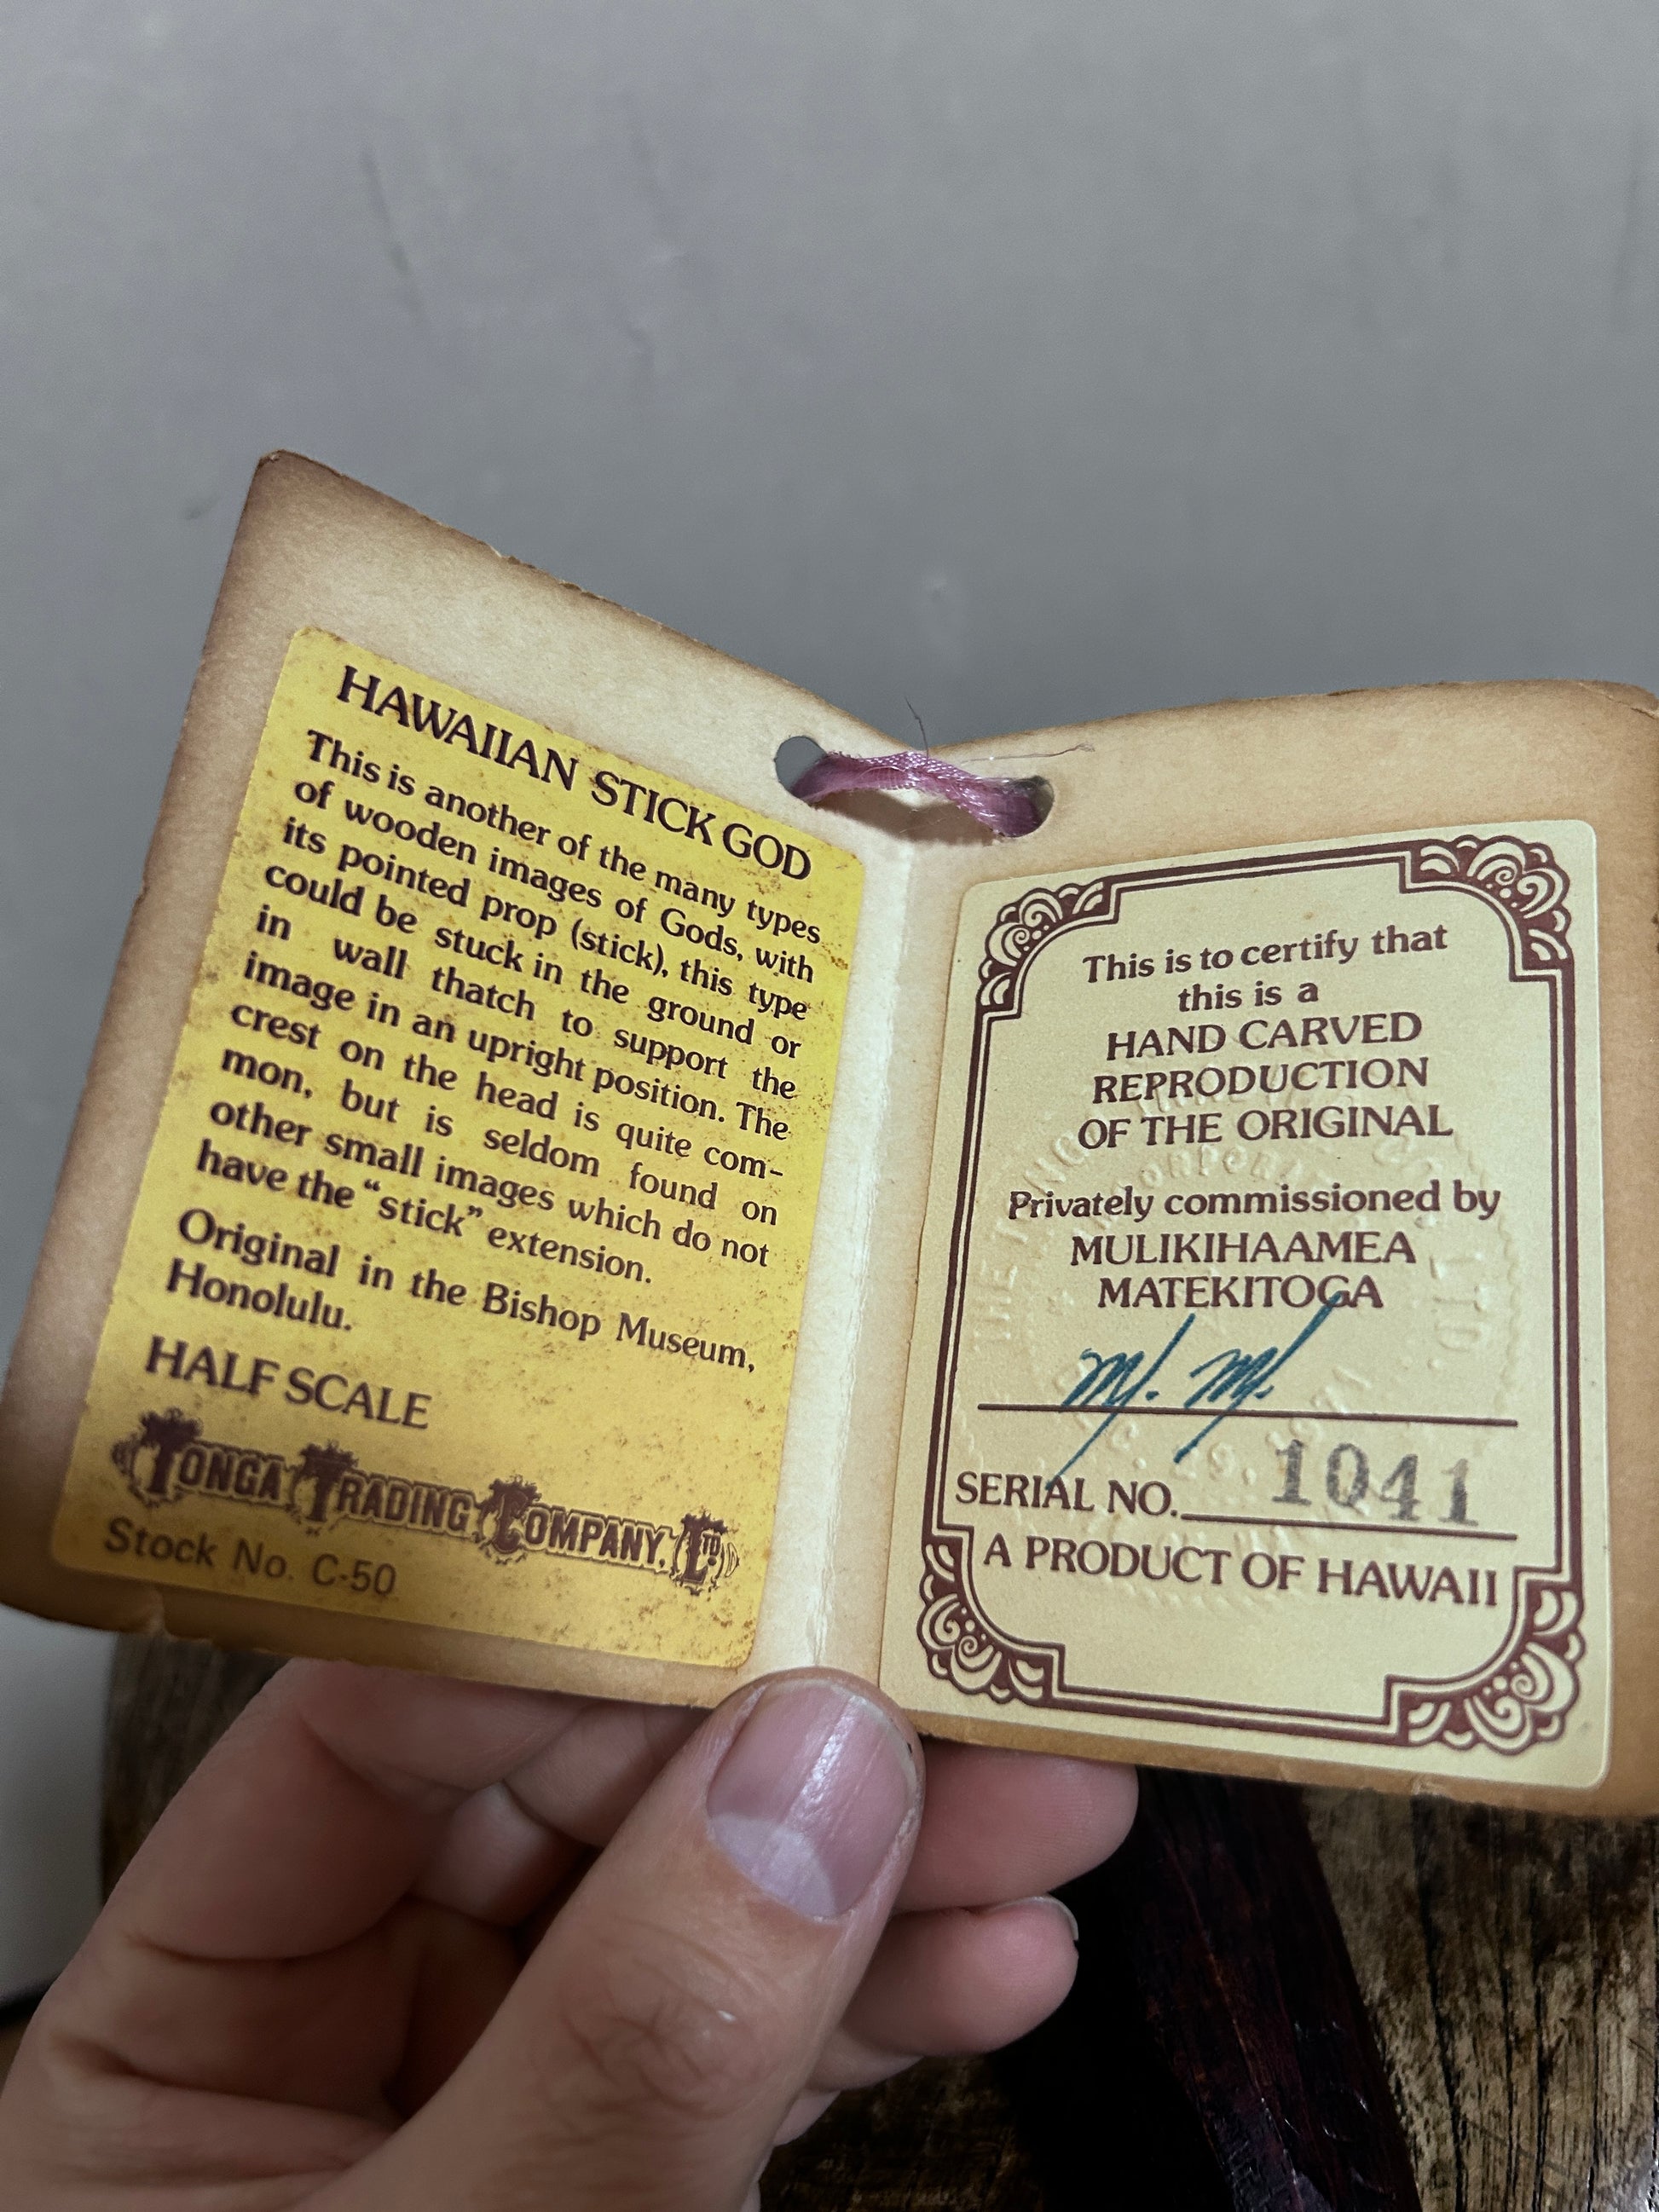 HAWAIIAN STICK GOD
This is another of the many types
of wooden images of Gods, with
its pointed prop (stick), this type
could be stuck in the ground or
in wall thatch to support the
image in an upright position. The
crest on the head is quite com-
mon, but is seldom found on
other small images which do not
have the “stick” extension.
Original in the Bishop Museum,
Honolulu.
HALF SCALE
TONGA TRADING COMPANY, LTD.
Stock No. C-50
This is to certify that
this is a
HAND CARVED
REPRODUCTION
OF THE ORIGINAL
Privately commissioned by
MULIKIHAAMEA
MATEKITOGA
SERIAL NO. 1041
A PRODUCT OF HAWAII